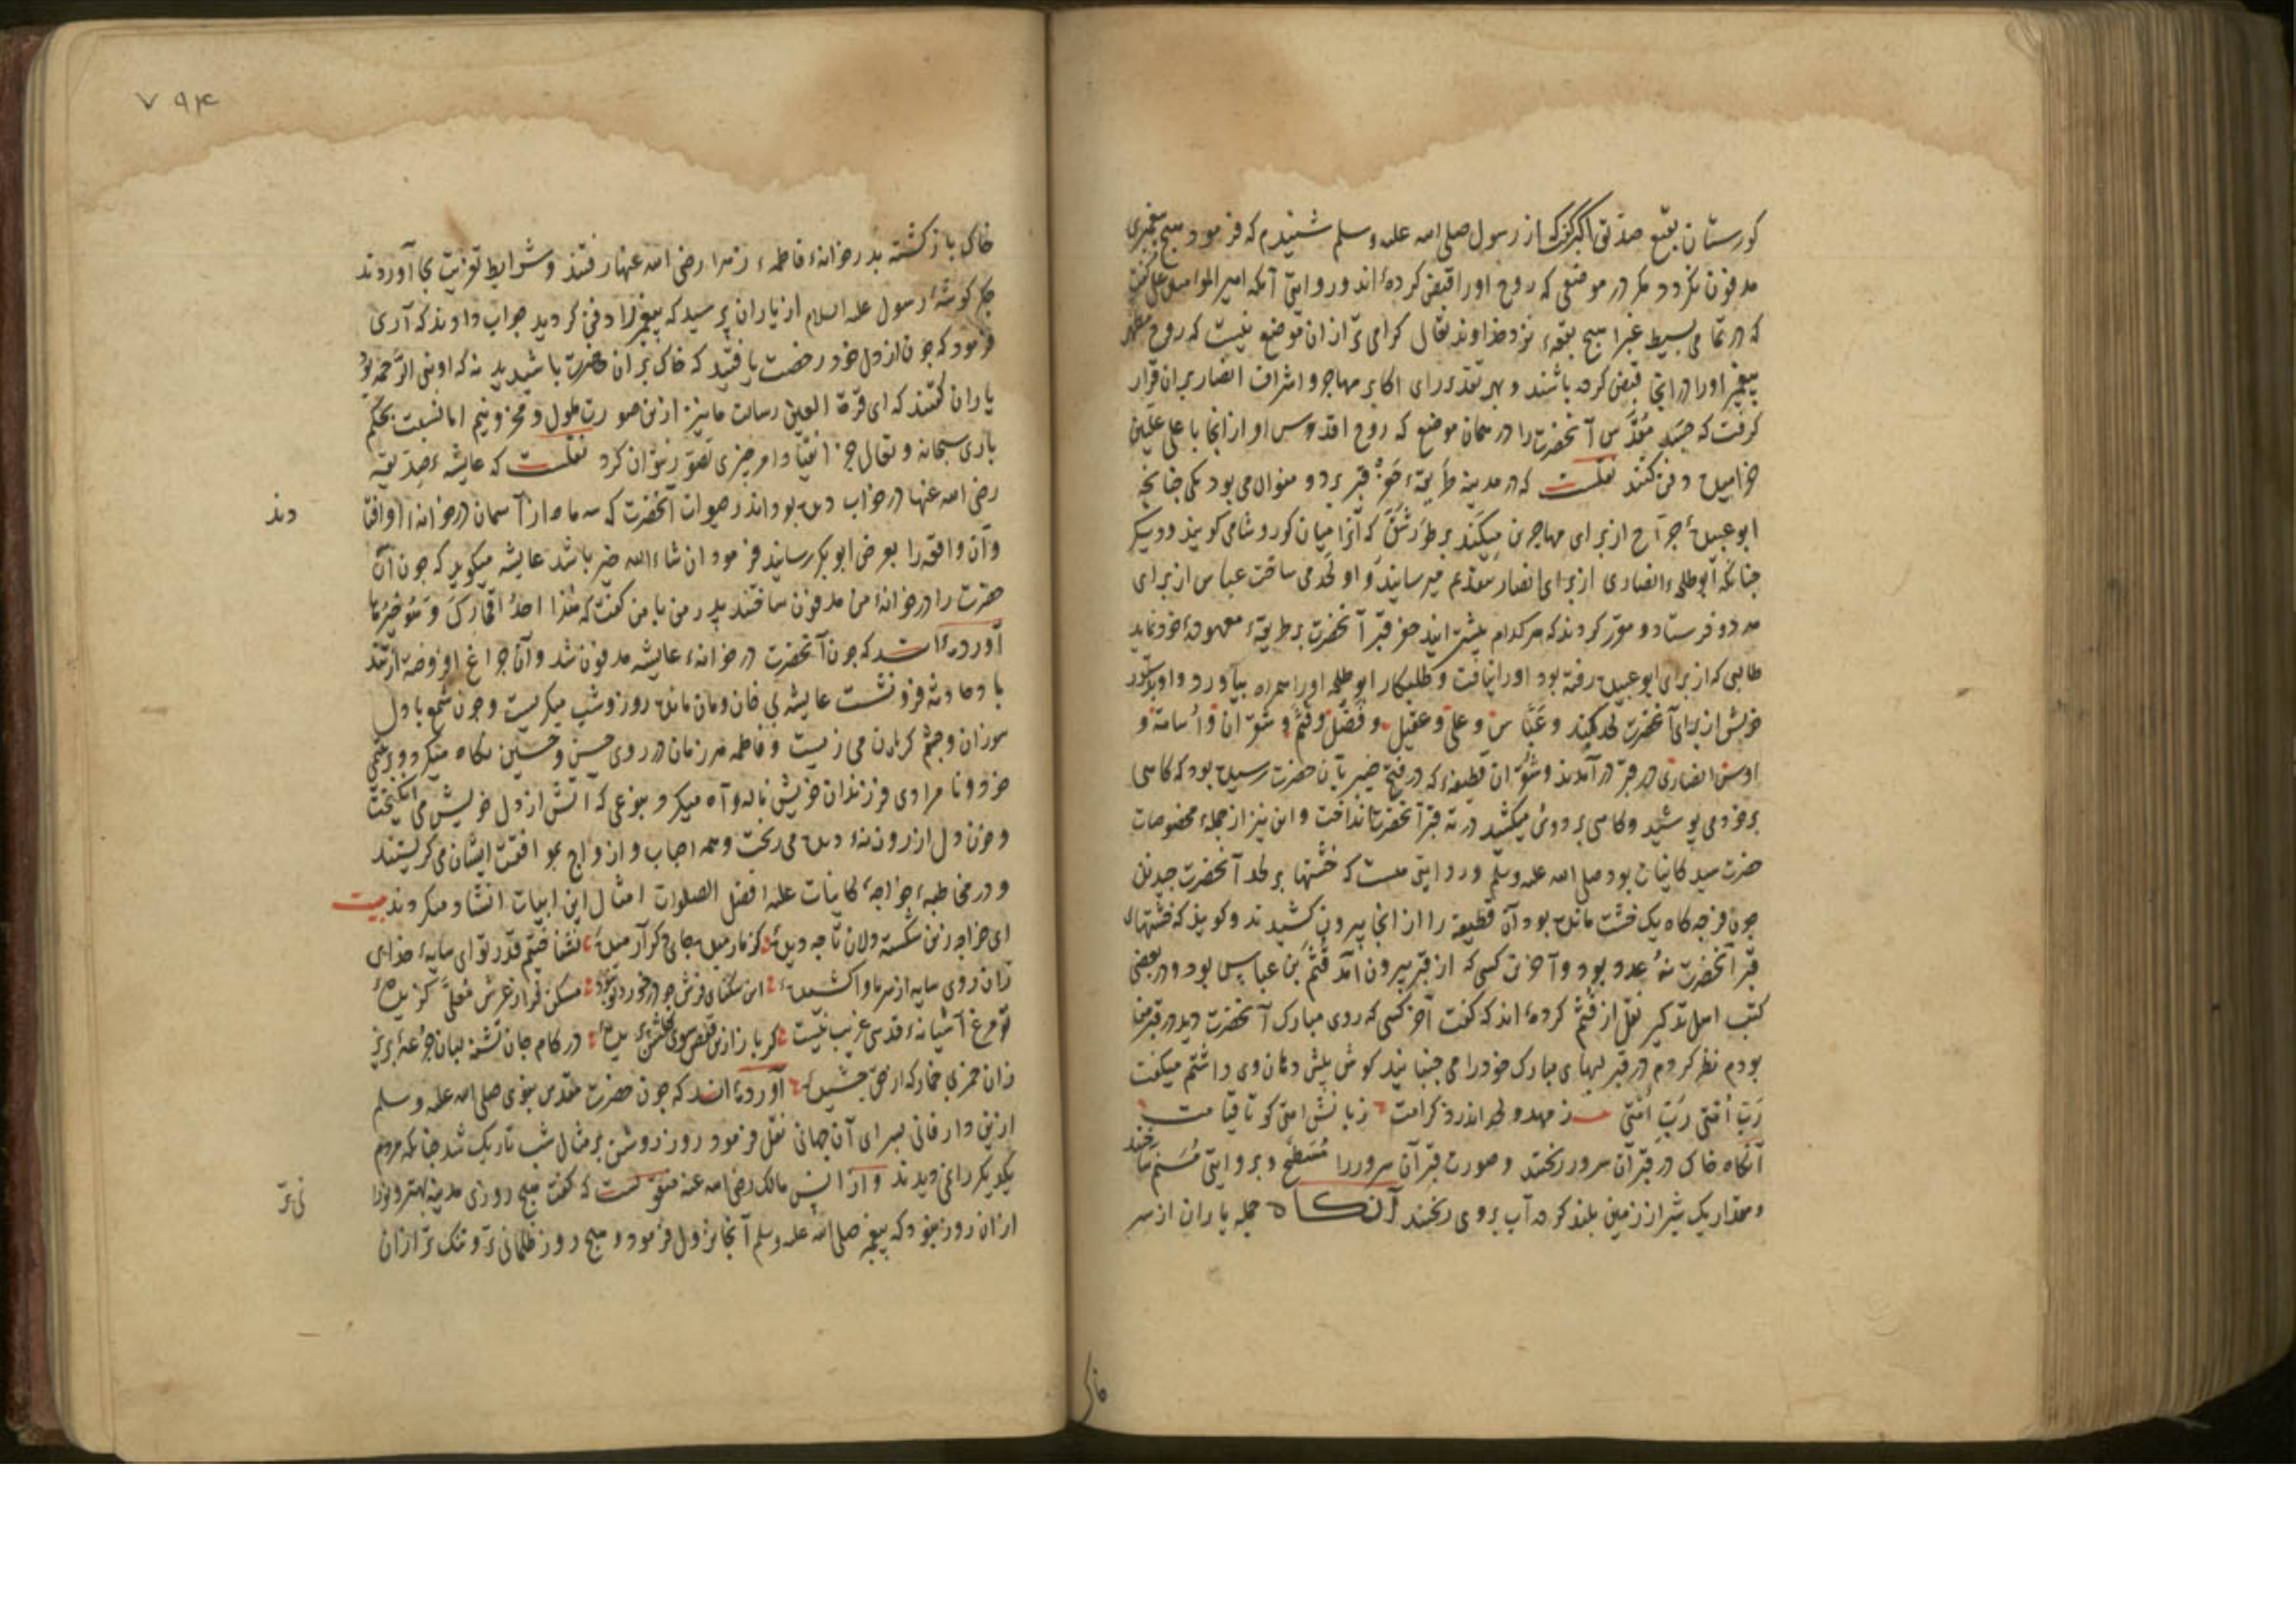 کورستان بقیع صدّیق اکبر گفت که از رسول صلی الله علیه وسلم شنیدم که فرمود هیچ پیغمبری
مدفون نکردد مکر در موضعی که روح او را قبض کرده‌اند و روایتی آنکه امیرالمؤمنین علی گفت
که در تمامی بسیط غبرا هیچ بقعهٔ نزد خداوند تعالی کرامی‌تر از آن موضع نیست که روح مطهر
پیغمبر او را در آنجا قبض کرده باشند و بهر تقدیر رای اکابر مهاجر و اشراف انصار بر آن قرار
کرفت که جسد مقدّس آنحضرت را در همان موضع که روح اقدس او از آنجا باعلی علیین
خرامیده دفن کنند نقلست که در مدینه طریقهٔ حفر قبر بر دو منوال می‌بود یکی چنانچه
ابوعبیدهٔ جرّاح از برای مهاجرین میکند بر طرز شق که آنرا میان کور و شامی کویند و دیکر
چنانکه ابوطلحهٔ انصاری از برای انصار بتقدیم میرسانید و او لحد می ساخت عباس از برای
هر دو فرستاد و مقرر کردند که هر کدام پیشتر آیند حفر قبر آنحضرت بر طریقهٔ معهودهٔ خود نماید
طالبی که از برای ابوعبیده رفته بود او را نیافت و طلبکار ابوطلحه او را همراه بیاورد و او بدستور
خویش از برای آنحضرت لحد کند و عبّاس و علی و عقیل و فضل و قثم و شقران و اسامة و
اوس انصاری در قبر در آمدند و شقران قطیفهٔ که در فتح خیبر بآن حضرت رسیده بود که کاهی
بر خود می پوشید و کاهی بر دوش میکشید در ته قبر آنحضرت انداخت و این نیز از جملهٔ مخصوصات
حضرت سید کاینات بود صلی الله علیه وسلم و روایتی هست که خشتها بر لحد آنحضرت چیدند
چون فرجه کاه یک خشت مانده بود آن قطیفه را از آنجا بیرون کشیدند و کویند که خشتهای
قبر آنحضرت نه عدد بود و آخرین کسی که از قبر بیرون آمد قثم بن عباس بود و در بعضی
کتب اهل تذکیر نقل از قثم کرده‌اند که کفت آخر کسی که روی مبارک آنحضرت دید در قبر من
بودم نظر کردم در قبر لبهای مبارک خود را می جنبانید کوش پیش دهان وی داشتم میکفت
ربّ امّتی ربّ امّتی ز مهد و لحد اندر و کرامت زبانش امتی کو تا قیامت
آنکاه خاک در قبر آن سرور ریختند و صورت قبر آن سرور را مسطّح و بروایتی مسنّم ساختند
و مقدار یک شبر از زمین بلند کرده آب بر وی ریختند آنکاه جمله یاران از سر
خاک
۷۹۴
خاک باز کشته بدر خانهٔ فاطمهٔ زهرا رضی الله عنها رفتند و شرایط تعزیت بجا آوردند
جکر کوشهٔ رسول علیه السلام از یاران پرسید که پیغمبر را دفن کردید جواب دادند که آری
فرمود که چون از دل خود رخصت یافتید که خاک بر آن حضرت پاشیدید نه که او نبی الرّحمه بود
یاران کفتند که ای قرّة العین رسالت ما نیز ازین صورت ملول و محزونیم اما نسبت بحکم
باری سبحانه و تعالی جز انقیاد امر چیزی تصور نتوان کرد نقلست که عایشهٔ صدّیقه
رضی الله عنها در خواب دیده بود اندر حیوات آنحضرت که سه ماه از آسمان در خانهٔ او افتا
دند
و آن واقعه را بعرض ابوبکر رسانید فرمود ان شاء الله خیر باشد عایشه میکوید که چون آن
حضرت را در خانهٔ من مدفون ساختند پدر من با من کفت که هذا احد اقمارک و هو خیرها
آورده‌اند که چون آنحضرت در خانهٔ عایشه مدفون شد و آن چراغ افروخته از تند
باد حادثه فرو نشست عایشه بی خان و مان مانده روز و شب میکریست و چون شمع با دل
سوزان و چشم کریان می زیست و فاطمه هر زمان در روی حسن و حسین نکاه میکرد و بر یتیمی
خود و نامرادی فرزندان خویش ناله و آه میکرد بنوعی که آتش از دل خویش می انکیخت
و خون دل از روزنهٔ دیده می ریخت و همه احباب و ازواج بموافقت ایشان می کریستند
و در مخاطبهٔ خواجهٔ کاینات علیه افضل الصلوات امثال این ابیات انشاد میکردند بیت
ای خواجه زین شکسته دلان تا چه دیدهٔ کز ما رمیدهٔ بجای دکر آرمیدهٔ نشناختیم قدر تو ای سایهٔ خدای
زان روی سایه از سر ما واکشیدهٔ این تنکنای فرش چو در خورد تو نبود مسکن فراز عرش معلّی کزیدهٔ
تو مرغ آشیانهٔ قدسی غریب نیست کر باز ازین قفص سوی کلشن پریدهٔ در کام جان تشنه لبان جرعهٔ بریز
زان خمر بی خمار که از حق چشیدهٔ آورده‌اند که چون حضرت مقدس نبوی صلی الله علیه وسلم
ازین دار فانی بسرای آن جهانی نقل فرمود روز روشن بر مثال شب تاریک شد چنانکه مردم
یکدیکر را نمی دیدند و از انس مالک رضی الله عنه منقولست که کفت هیچ روزی مدینه بهتر و نورا
نی تر
از آن روز نبود که پیغمبر صلی الله علیه وسلم آنجا نزول فرمود و هیچ روز ظلمانی تر و تنک تر از آن